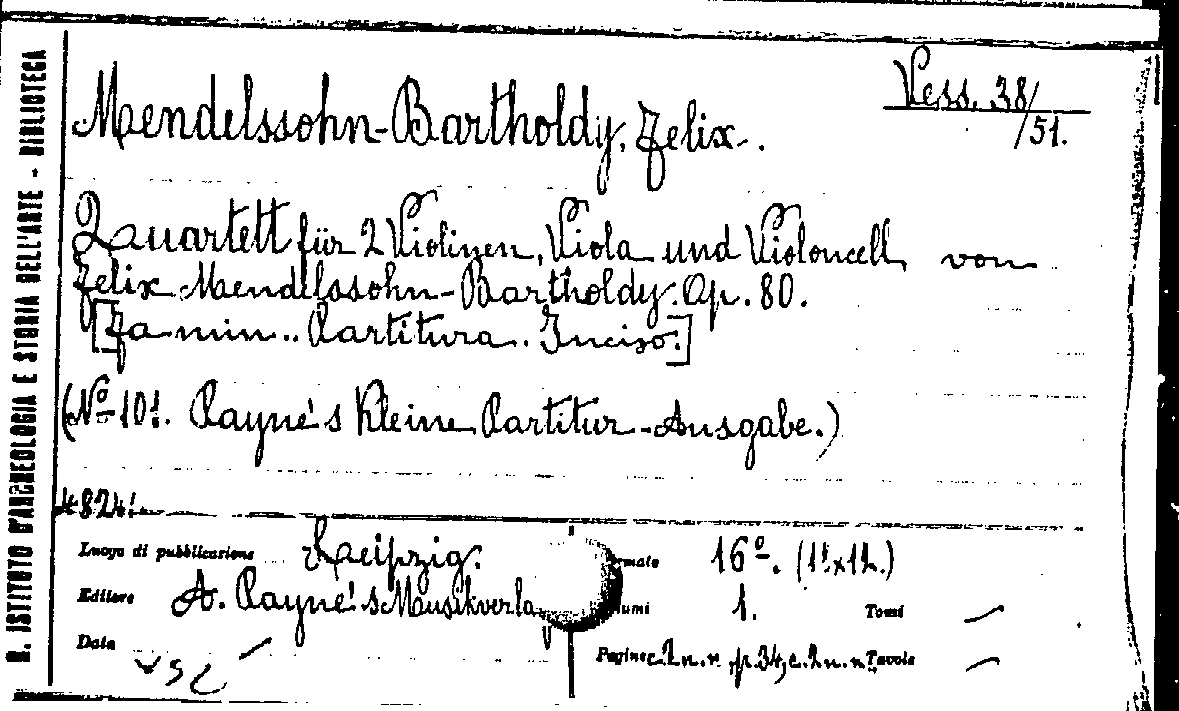 R. ISTITUTO D'ARCHEOLOGIA E STORIA DELL'ARTE - BIBLIOTECA
Vess. 38/
/51.
Mendelssohn-Bartholdy, Felix.
Quartett für 2 Violinen, Viola und Violoncell, von
Felix Mendelssohn-Bartholdy. Op. 80.
[Fa min.. Partitura. Inciso.]
(Nº 101. Payne's Kleine Partitur-Ausgabe.)
Luogo di pubblicazione Leipzig.
Editore A. Payne's Musikverlag
Data
16º.
1. Tomi
Pagine c. 2 n. n. p. 34, c. 2 n. n. Tavole